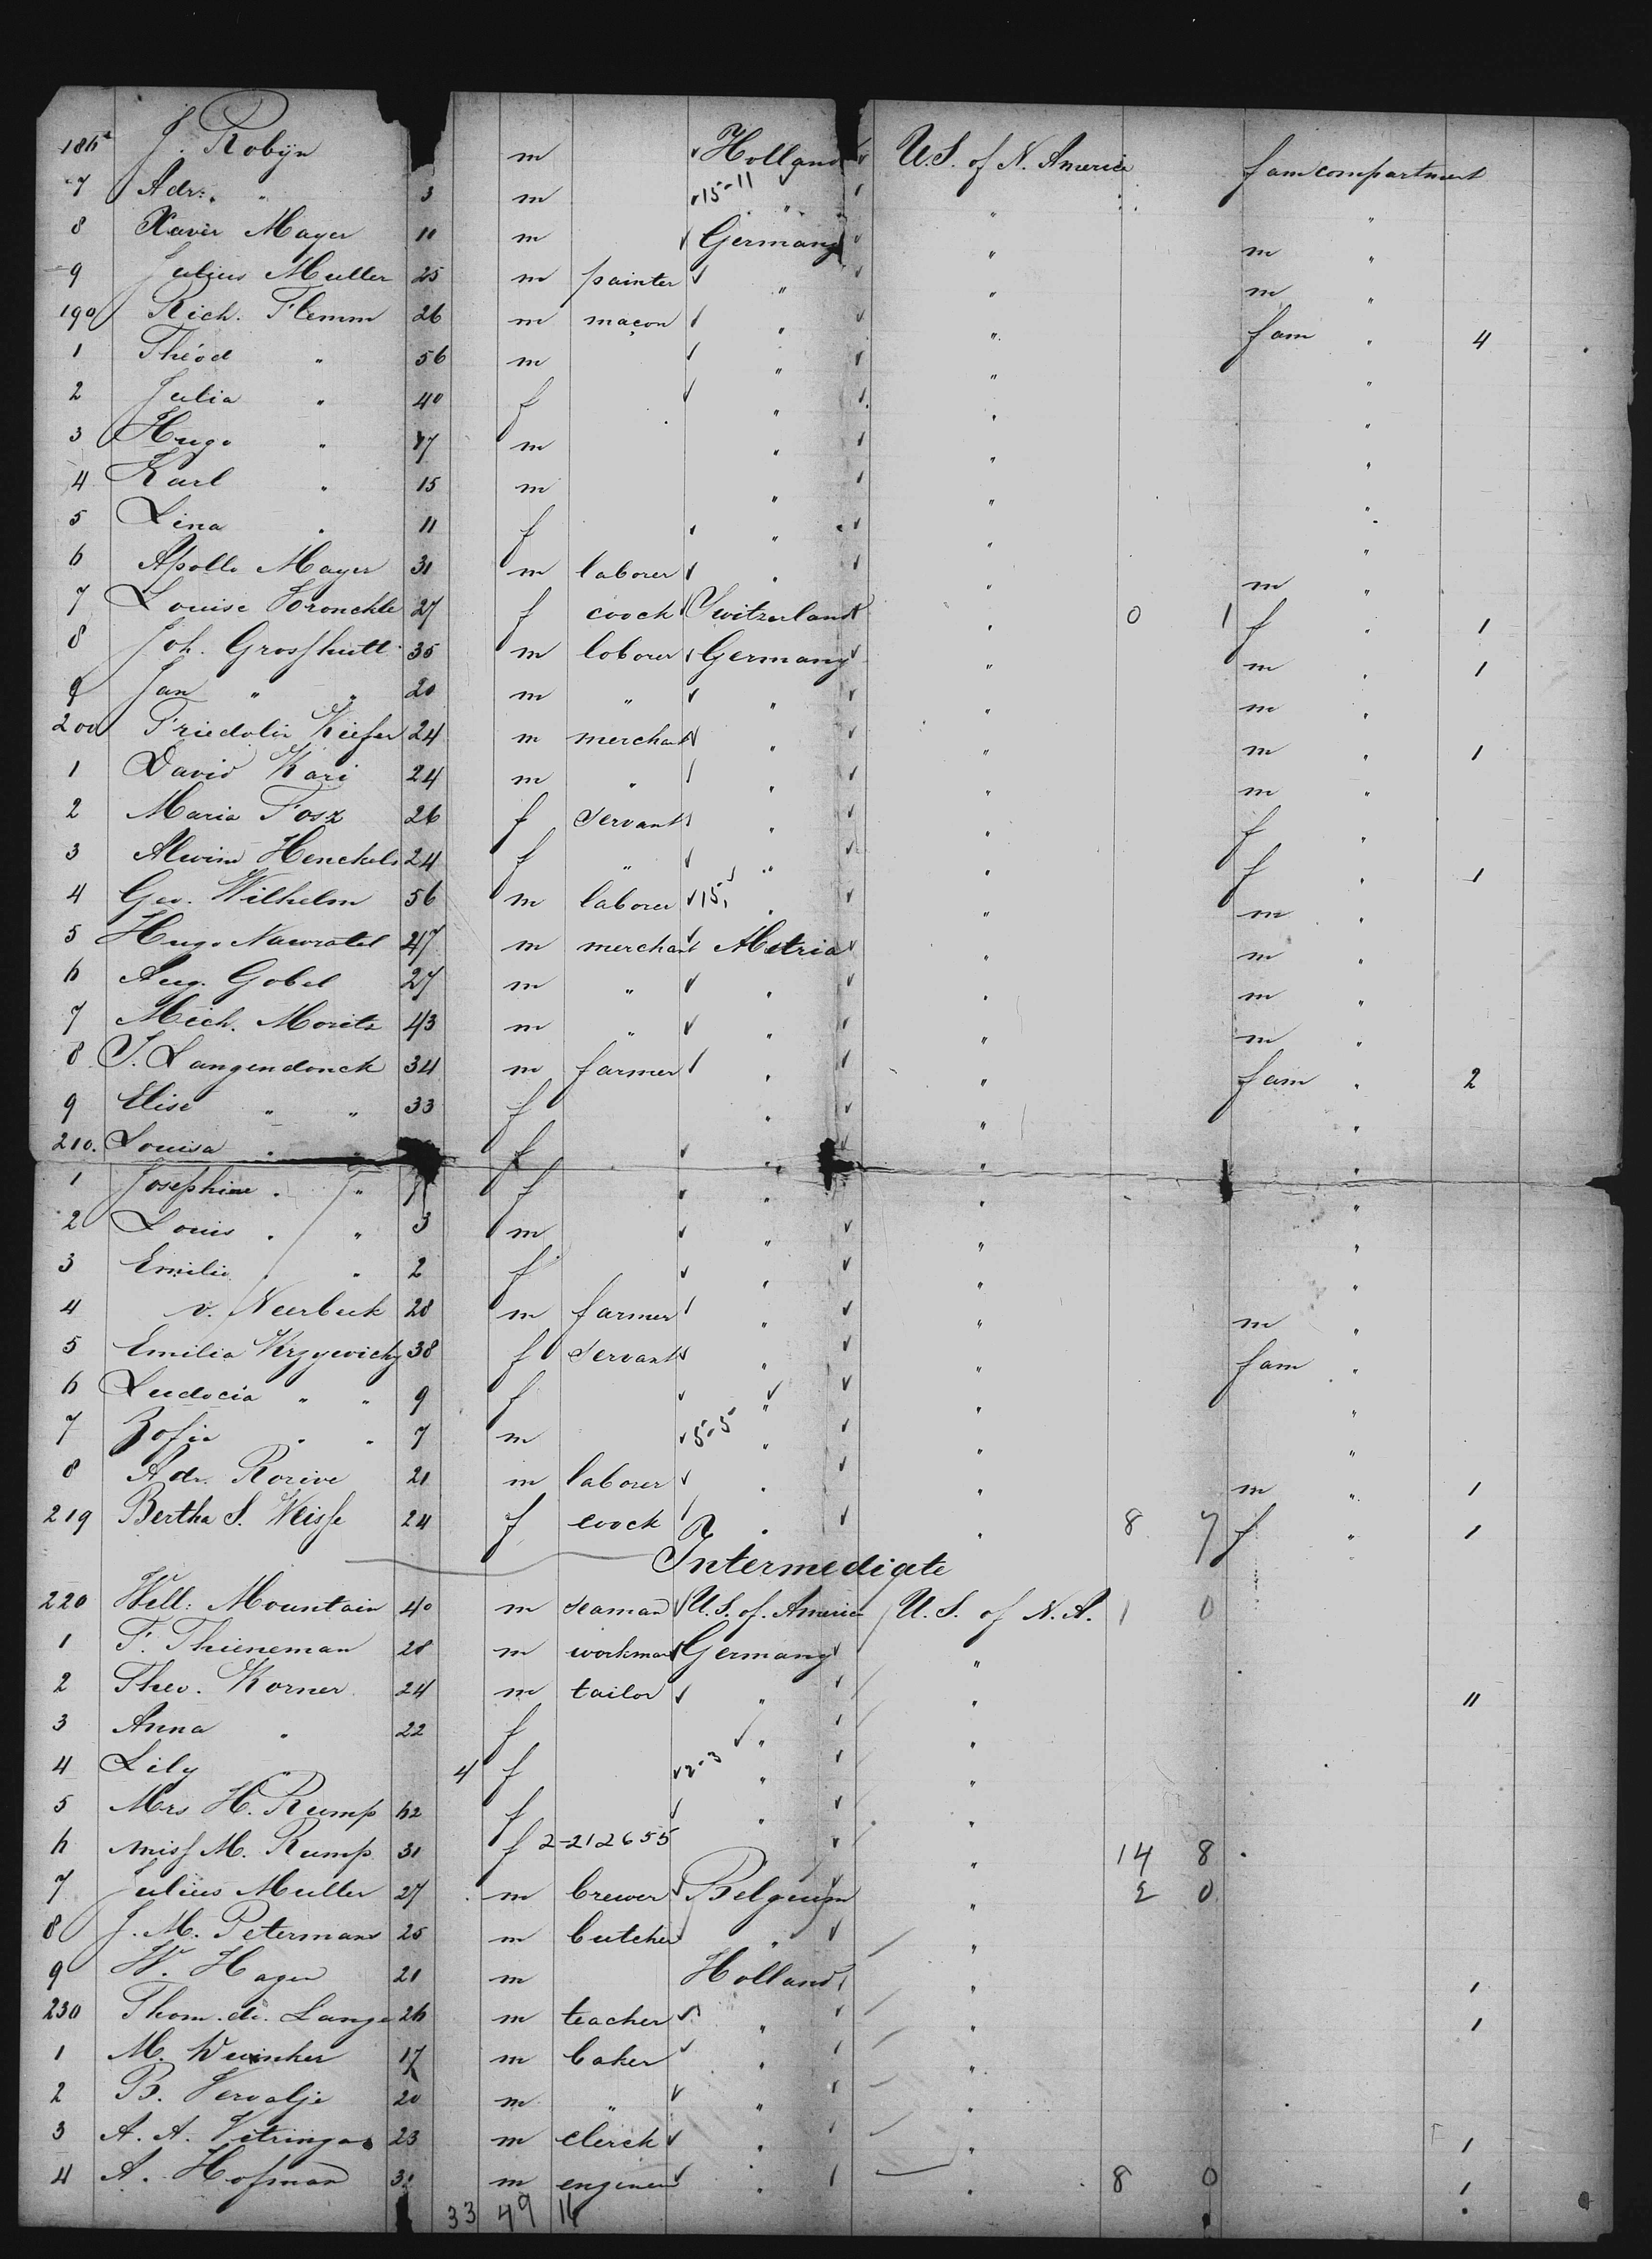 186 J. Robijn m Holland U.S. of N. America fam compartment
7 Adr. " 3 m 15-11 " " "
8 Xavir Mayer 11 m Germany " m "
9 Julius Muller 25 m painter " " m "
190 Rich. Flemm 26 m maçon " " fam " 4
1 Théod " 56 m " " "
2 Julia " 40 f " " "
3 Hugo " 17 m " " "
4 Karl " 15 m " " "
5 Lina " 11 f " " "
6 Apollo Mayer 31 m laborer " " m "
7 Louise 27 f coock Switzerland " 0 1 f " 1
8 Joh. Grosshutt 35 m loborer Germany " m " 1
9 Jan " " 20 m " " " m "
200 Friedolin Kiefer 24 m merchant " " m " 1
1 David Kari 24 m " " " m "
2 Maria Fosz 26 f servant " " f "
3 Alwine Henckels 24 f " " " f " 1
4 Geo. Wilhelm 56 m laborer 15, " " m "
5 Hugo Nawratel 47 m merchant " m "
6 Aug. Gobel 27 m " " " m "
7 Mich. Moritz 43 m " " " m "
8 J. Langendonck 34 m farmer " " fam " 2
9 Elise " " 33 f " " "
210. Louisa " " f " " "
1 Josephine " " f " " "
2 Louis " " 3 m " " "
3 Emilie " " 2 f " " "
4 v. Neerbeek 28 m farmer " " m "
5 Emilia Krzyevichy 38 f servant " " fam "
6 Ludocia " " 9 f " " "
7 Zofia " " 7 m 5-5 " " "
8 Adr. Rorive 21 m laborer " " m " 1
219 Bertha S. Weisse 24 f coock " " 8 7 f " 1
Intermediate
220 Will: Mountain 40 m seaman U.S. of America U.S. of N.A. 1 0
1 F. Thieneman 28 m workman Germany "
2 Theo. Korner 24 m tailor " " 11
3 Anna " 22 f " "
4 Lily " 4 f 2-3 " "
5 Mrs H. Rump 62 f " "
6 Miss M. Rump 31 f 2-212655 " 14 8
7 Julius Muller 27 m brewer Belgium " 2 0
8 J. M. Petermans 25 m butcher " "
9 W. Hagen 21 m Holland " 1
230 Thom. de Lange 26 m teacher " " 1
1 M. 17 m baker " "
2 B. Vervalje 20 m " " "
3 A. A. Vitringa 23 m clerck " " 1
4 A. Hofman 31 m engineer " " 8 0 1
33 49 16